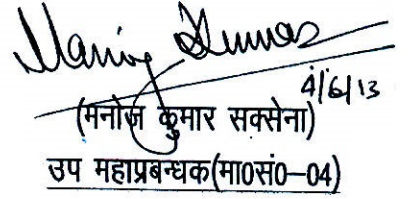 Manoj Kumar
4/6/13
(मनोज कुमार सक्सेना)
उप महाप्रबन्धक(मा0सं0-04)